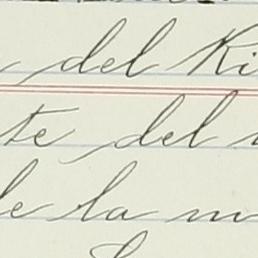 del Ki
te del
le la m